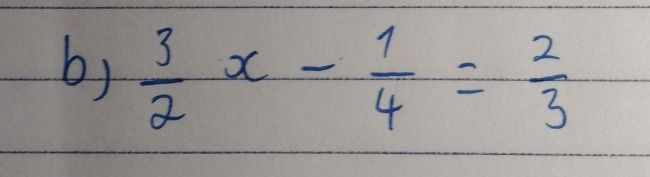 b) 3/2 x - 1/4 = 2/3